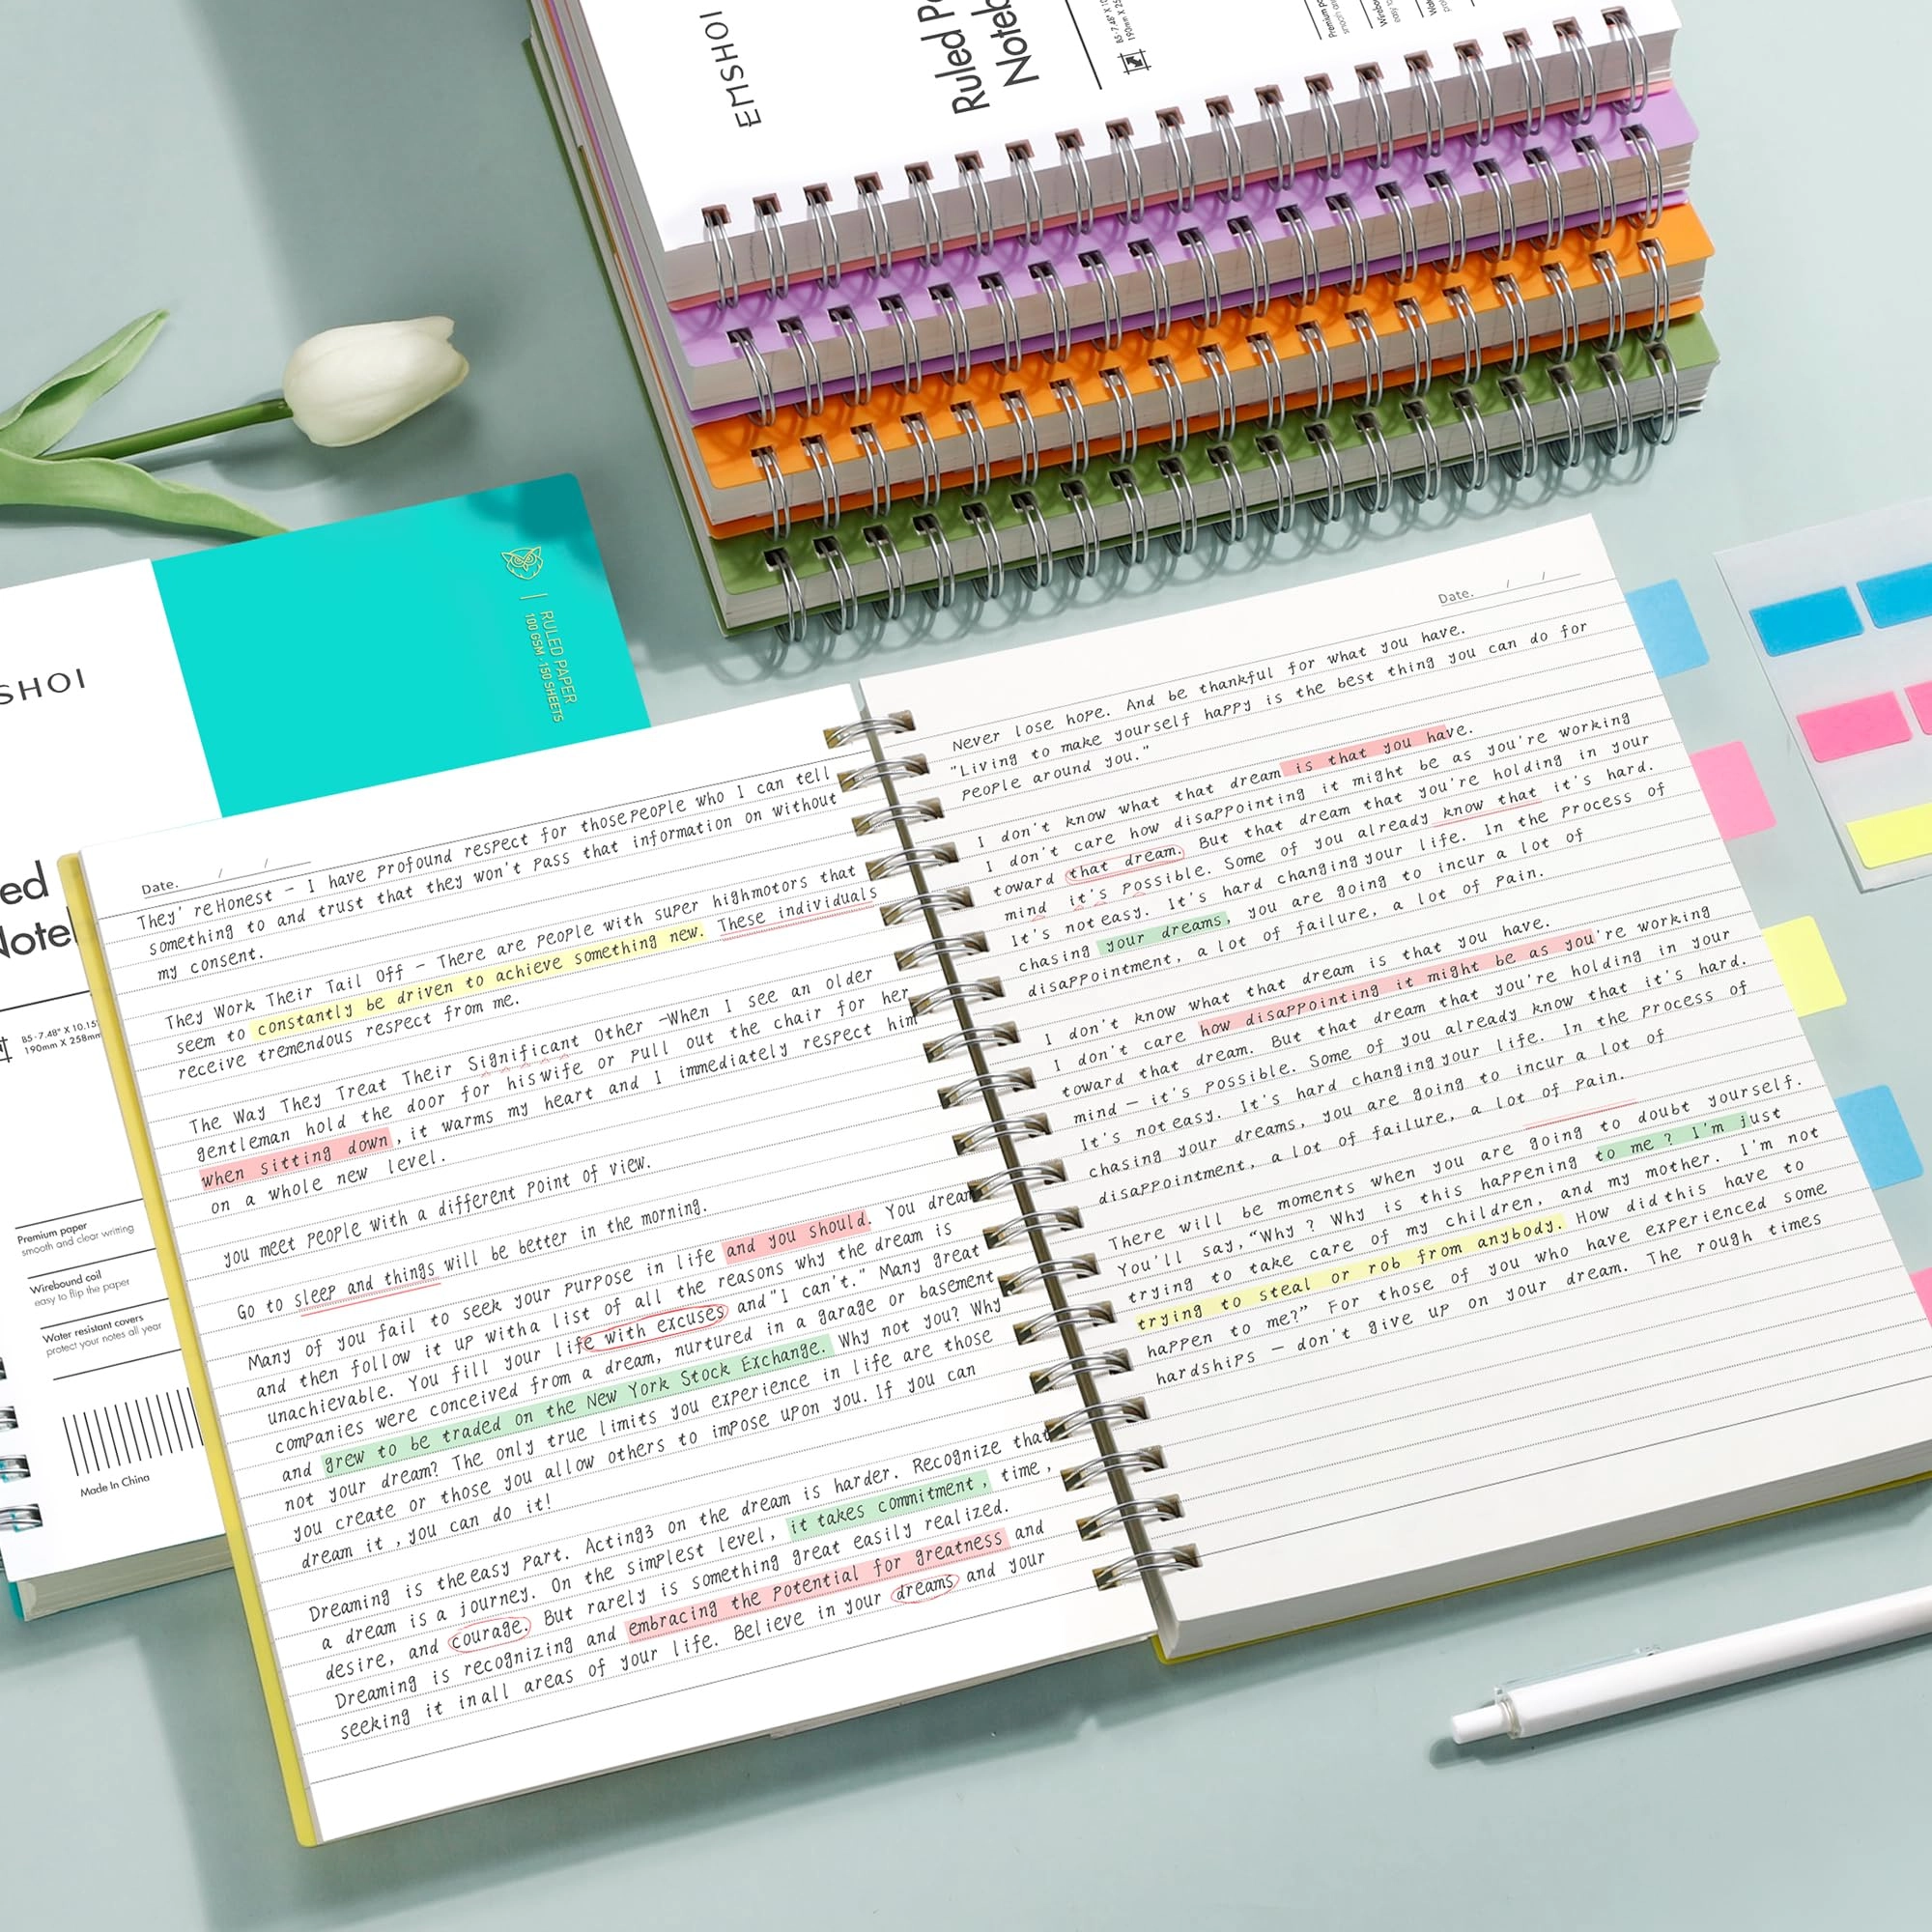 EMSHOI
Ruled P
Noteb
B5-7.48" X 10
190mm X 25
Premium p
smooth an
Wirebo
easy to
Wat
RULED PAPER
100 GSM · 150 SHEETS
SHOI
ed
Note
B5-7.48" X 10.15"
190mm X 258mm
Premium paper
smooth and clear writting
Wirebound coil
easy to flip the paper
Water resistant covers
protect your notes all year
Made In China
Date. / /
They' reHonest – I have profound respect for thosepeople who I can tell
something to and trust that they won't pass that information on without
my consent.
They Work Their Tail Off – There are people with super highmotors that
seem to constantly be driven to achieve something new. These individuals
receive tremendous respect from me.
The Way They Treat Their Significant Other –When I see an older
gentleman hold the door for hiswife or pull out the chair for her
when sitting down ,it warms my heart and I immediately respect him
on a whole new level.
you meet people with a different point of view.
Go to sleep and things will be better in the morning.
Many of you fail to seek your purpose in life and you should. You dream
and then follow it up witha list of all the reasons why the dream is
unachievable. You fill your life with excuses and"I can't." Many great
companies were conceived from a dream, nurtured in a garage or basement
and grew to be traded on the New York Stock Exchange. Why not you? Why
not your dream? The only true limits you experience in life are those
you create or those you allow others to impose upon you.If you can
dream it ,you can do it!
Dreaming is theeasy part. Acting3 on the dream is harder. Recognize that
a dream is a journey. On the simplest level, it takes commitment, time ,
desire, and courage. But rarely is something great easily realized.
Dreaming is recognizing and embracing the potential for greatness and
seeking it inall areas of your life. Believe in your dreams and your
Date. / /
Never lose hope. And be thankful for what you have.
"Living to make yourself happy is the best thing you can do for
people around you."
I don't know what that dream is that you have.
I don't care how disappointing it might be as you're working
toward that dream. But that dream that you're holding in your
mind it's possible. Some of you already know that it's hard.
It's not easy. It's hard changing your life. In the process of
chasing your dreams, you are going to incur a lot of
disappointment, a lot of failure, a lot of pain.
I don't know what that dream is that you have.
I don't care how disappointing it might be as you're working
toward that dream. But that dream that you're holding in your
mind – it's possible. Some of you already know that it's hard.
It's not easy. It's hard changing your life. In the process of
chasing your dreams, you are going to incur a lot of
disappointment, a lot of failure, a lot of pain.
There will be moments when you are going to doubt yourself.
You'll say,"Why ? Why is this happening to me ? I'm just
trying to take care of my children, and my mother. I'm not
trying to steal or rob from anybody. How did this have to
happen to me?" For those of you who have experienced some
hardships – don't give up on your dream. The rough times